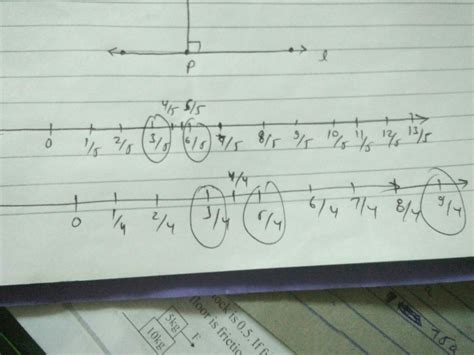 P l
4/5 5/5
0 1/5 2/5 3/5 6/5 7/5 8/5 9/5 10/5 11/5 12/5 13/5
4/4
0 1/4 2/4 3/4 5/4 6/4 7/4 8/4 9/4
ock is 0.5. If
floor is frictio
5kg
10kg
F